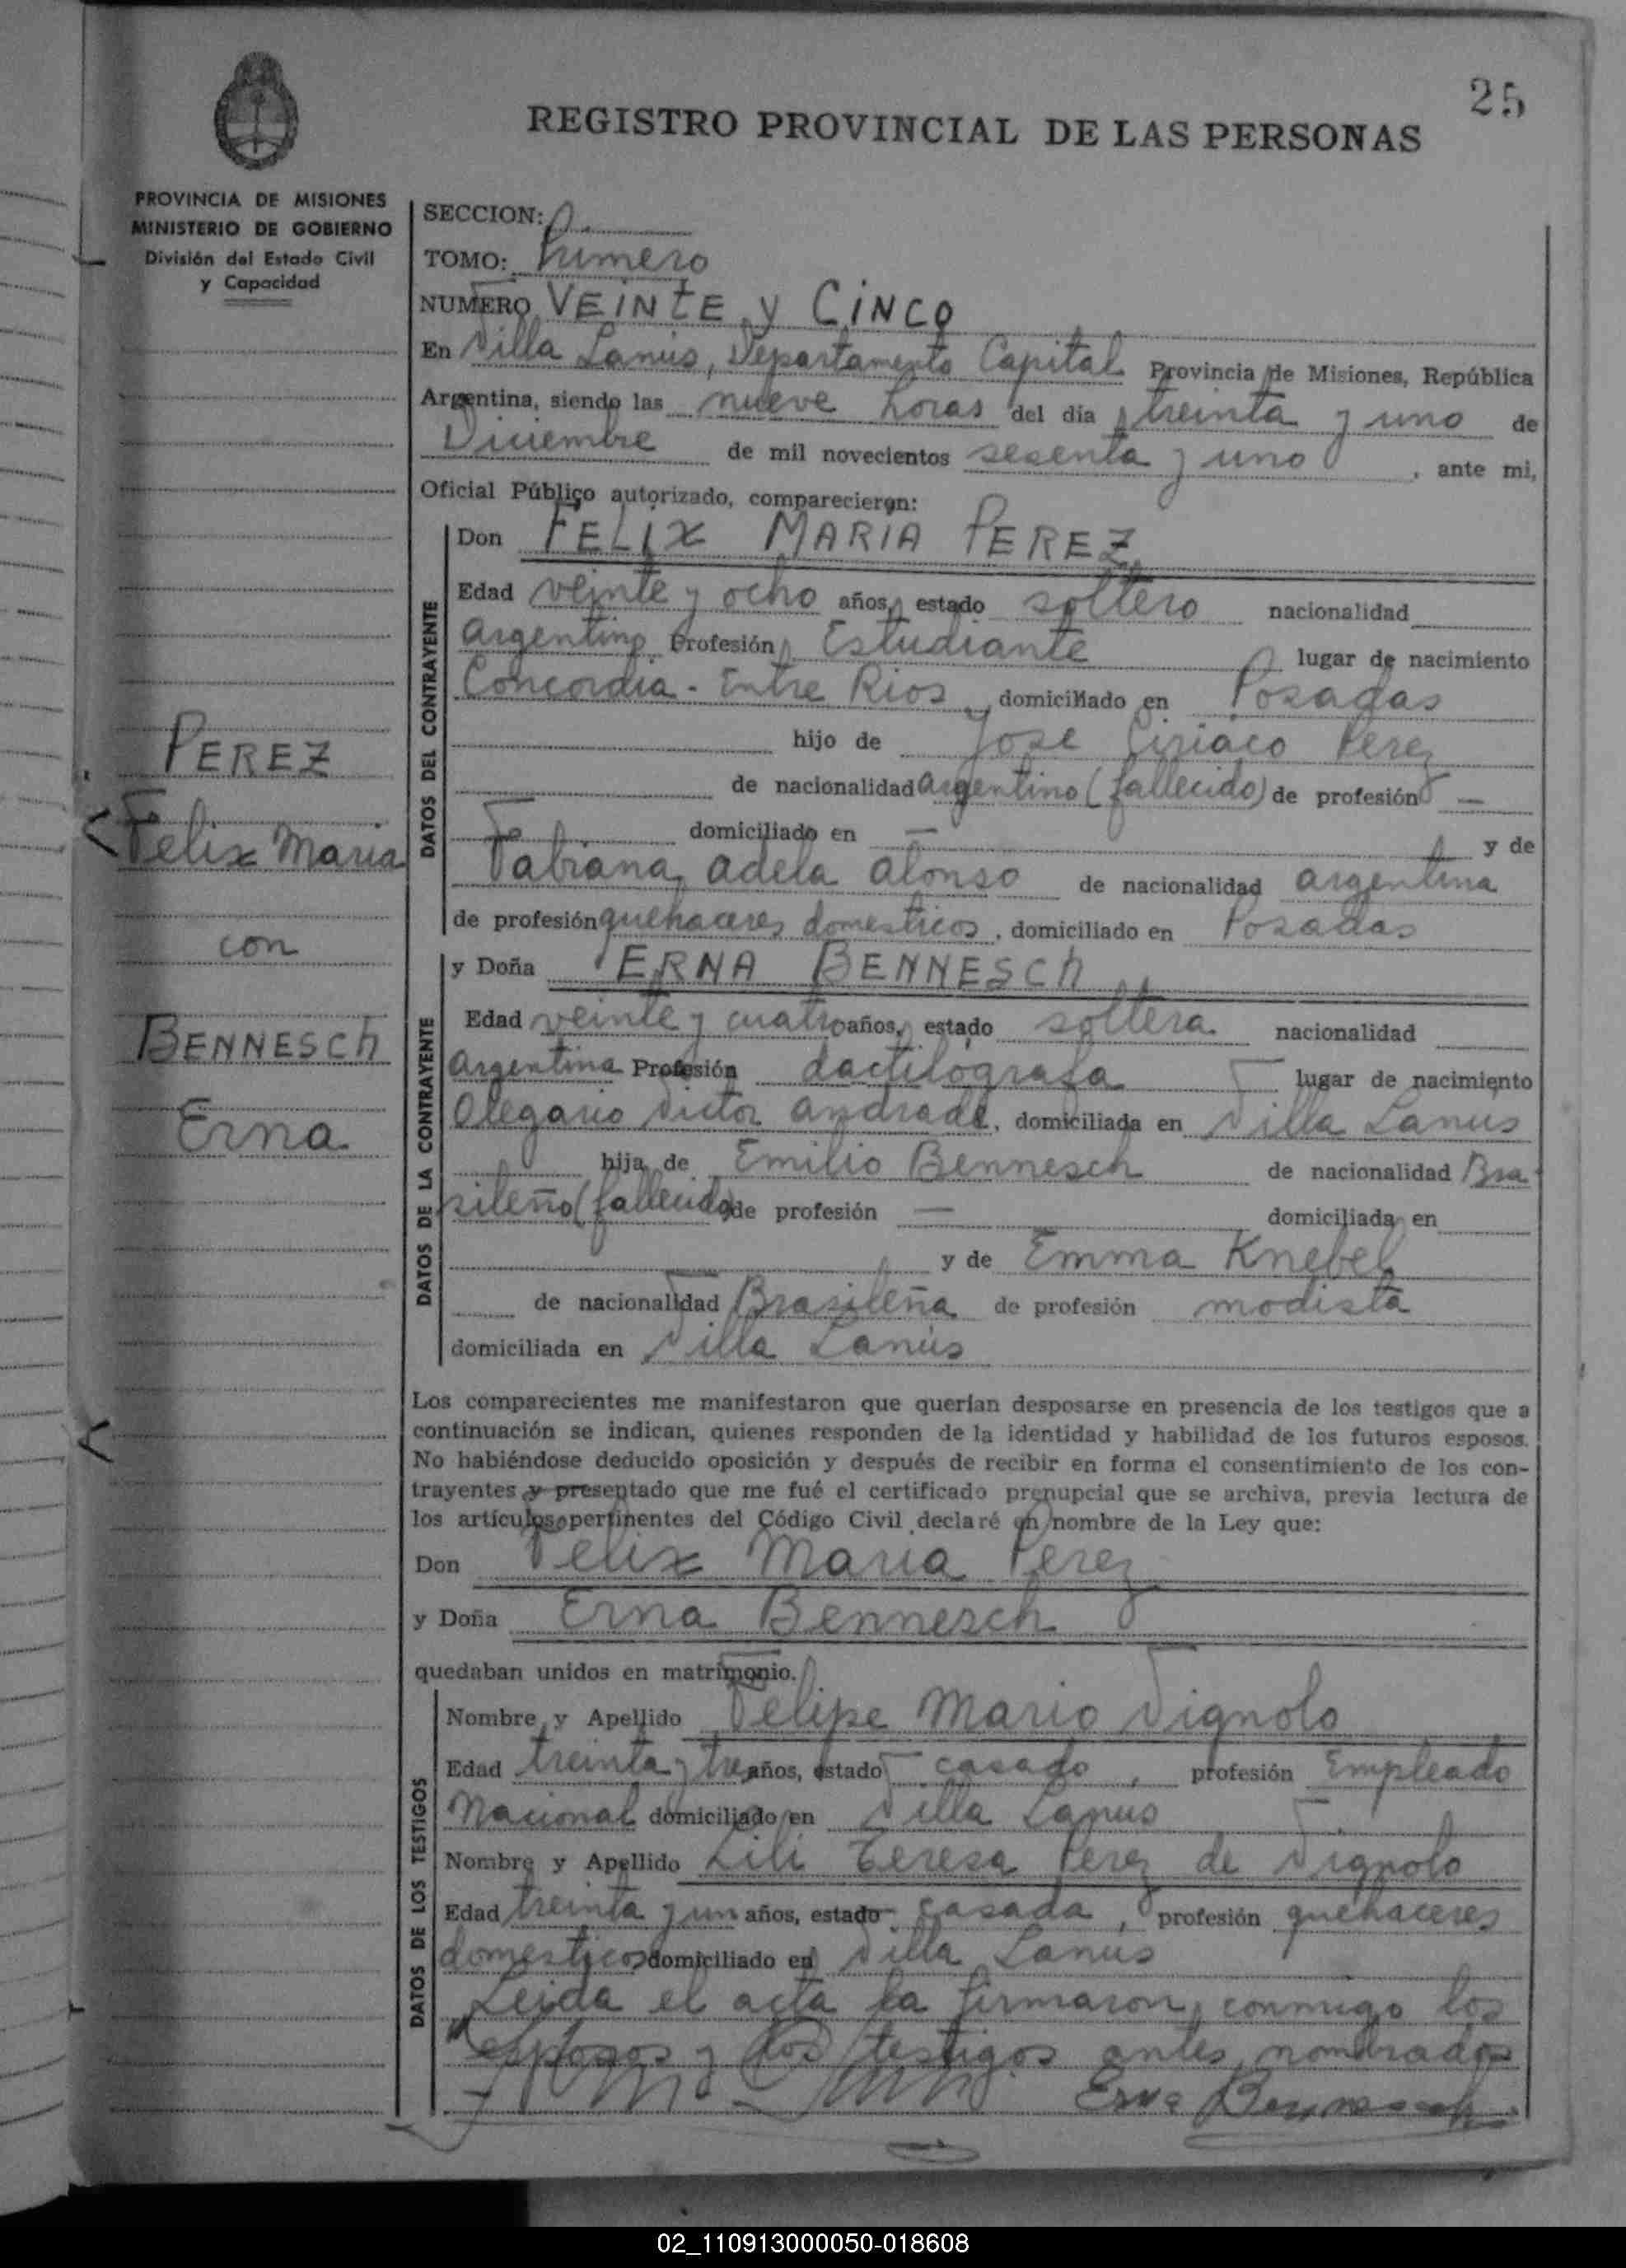 25
REGISTRO PROVINCIAL DE LAS PERSONAS
PROVINCIA DE MISIONES
MINISTERIO DE GOBIERNO
División del Estado Civil
y Capacidad
SECCION:
TOMO: Primero
NUMERO VEINTE y CINCO
En Villa Lanús, Departamento Capital Provincia de Misiones, República
Argentina, siendo las nueve horas del día treinta y uno de
Diciembre de mil novecientos sesenta y uno, ante mi,
Oficial Público autorizado, comparecieron:
DATOS DEL CONTRAYENTE
Don FELIX MARIA PEREZ
Edad veinte y ocho años, estado soltero nacionalidad
argentino Profesión Estudiante lugar de nacimiento
Concordia - Entre Rios, domiciliado en Posadas
hijo de Jose Ciriaco Perez
de nacionalidad argentino (fallecido) de profesión —
domiciliado en — y de
Fabiana adela alonso de nacionalidad argentina
de profesión quehaceres domesticos, domiciliado en Posadas
PEREZ
Felix Maria
con
BENNESCH
Erna
DATOS DE LA CONTRAYENTE
y Doña ERNA BENNESCH
Edad veinte y cuatro años, estado soltera nacionalidad
argentina Profesión dactilografa lugar de nacimiento
Olegario Victor andrade, domiciliada en Villa Lanus
hija de Emilio Bennesch de nacionalidad Bra-
sileño (fallecido) de profesión — domiciliada en
y de Emma Knebel
de nacionalidad Brasileña de profesión modista
domiciliada en Villa Lanús
Los comparecientes me manifestaron que querían desposarse en presencia de los testigos que a
continuación se indican, quienes responden de la identidad y habilidad de los futuros esposos.
No habiéndose deducido oposición y después de recibir en forma el consentimiento de los con-
trayentes y presentado que me fué el certificado prenupcial que se archiva, previa lectura de
los artículos pertinentes del Código Civil declaré en nombre de la Ley que:
Don Felix Maria Perez
y Doña Erna Bennesch
quedaban unidos en matrimonio.
DATOS DE LOS TESTIGOS
Nombre y Apellido Felipe Mario Vignolo
Edad treinta y tres años, estado casado, profesión Empleado
Nacional domiciliado en Villa Lanus
Nombre y Apellido Lili Teresa Perez de Vignolo
Edad treinta y un años, estado casada, profesión quehaceres
domesticos domiciliado en Villa Lanús
Leida el acta la firmaron, conmigo los
esposos y los testigos antes nombrados
Erna Bennesch
02_110913000050-018608